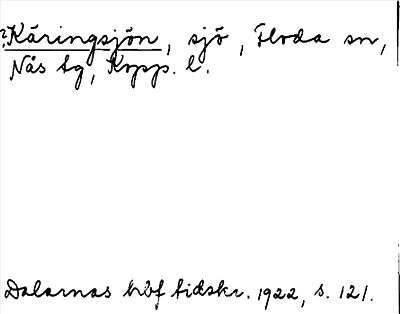 ?Käringsjön, sjö, Floda sn,
Nås tg, Kopp. l.
Dalarnas hbf tidskr. 1922, s. 121.